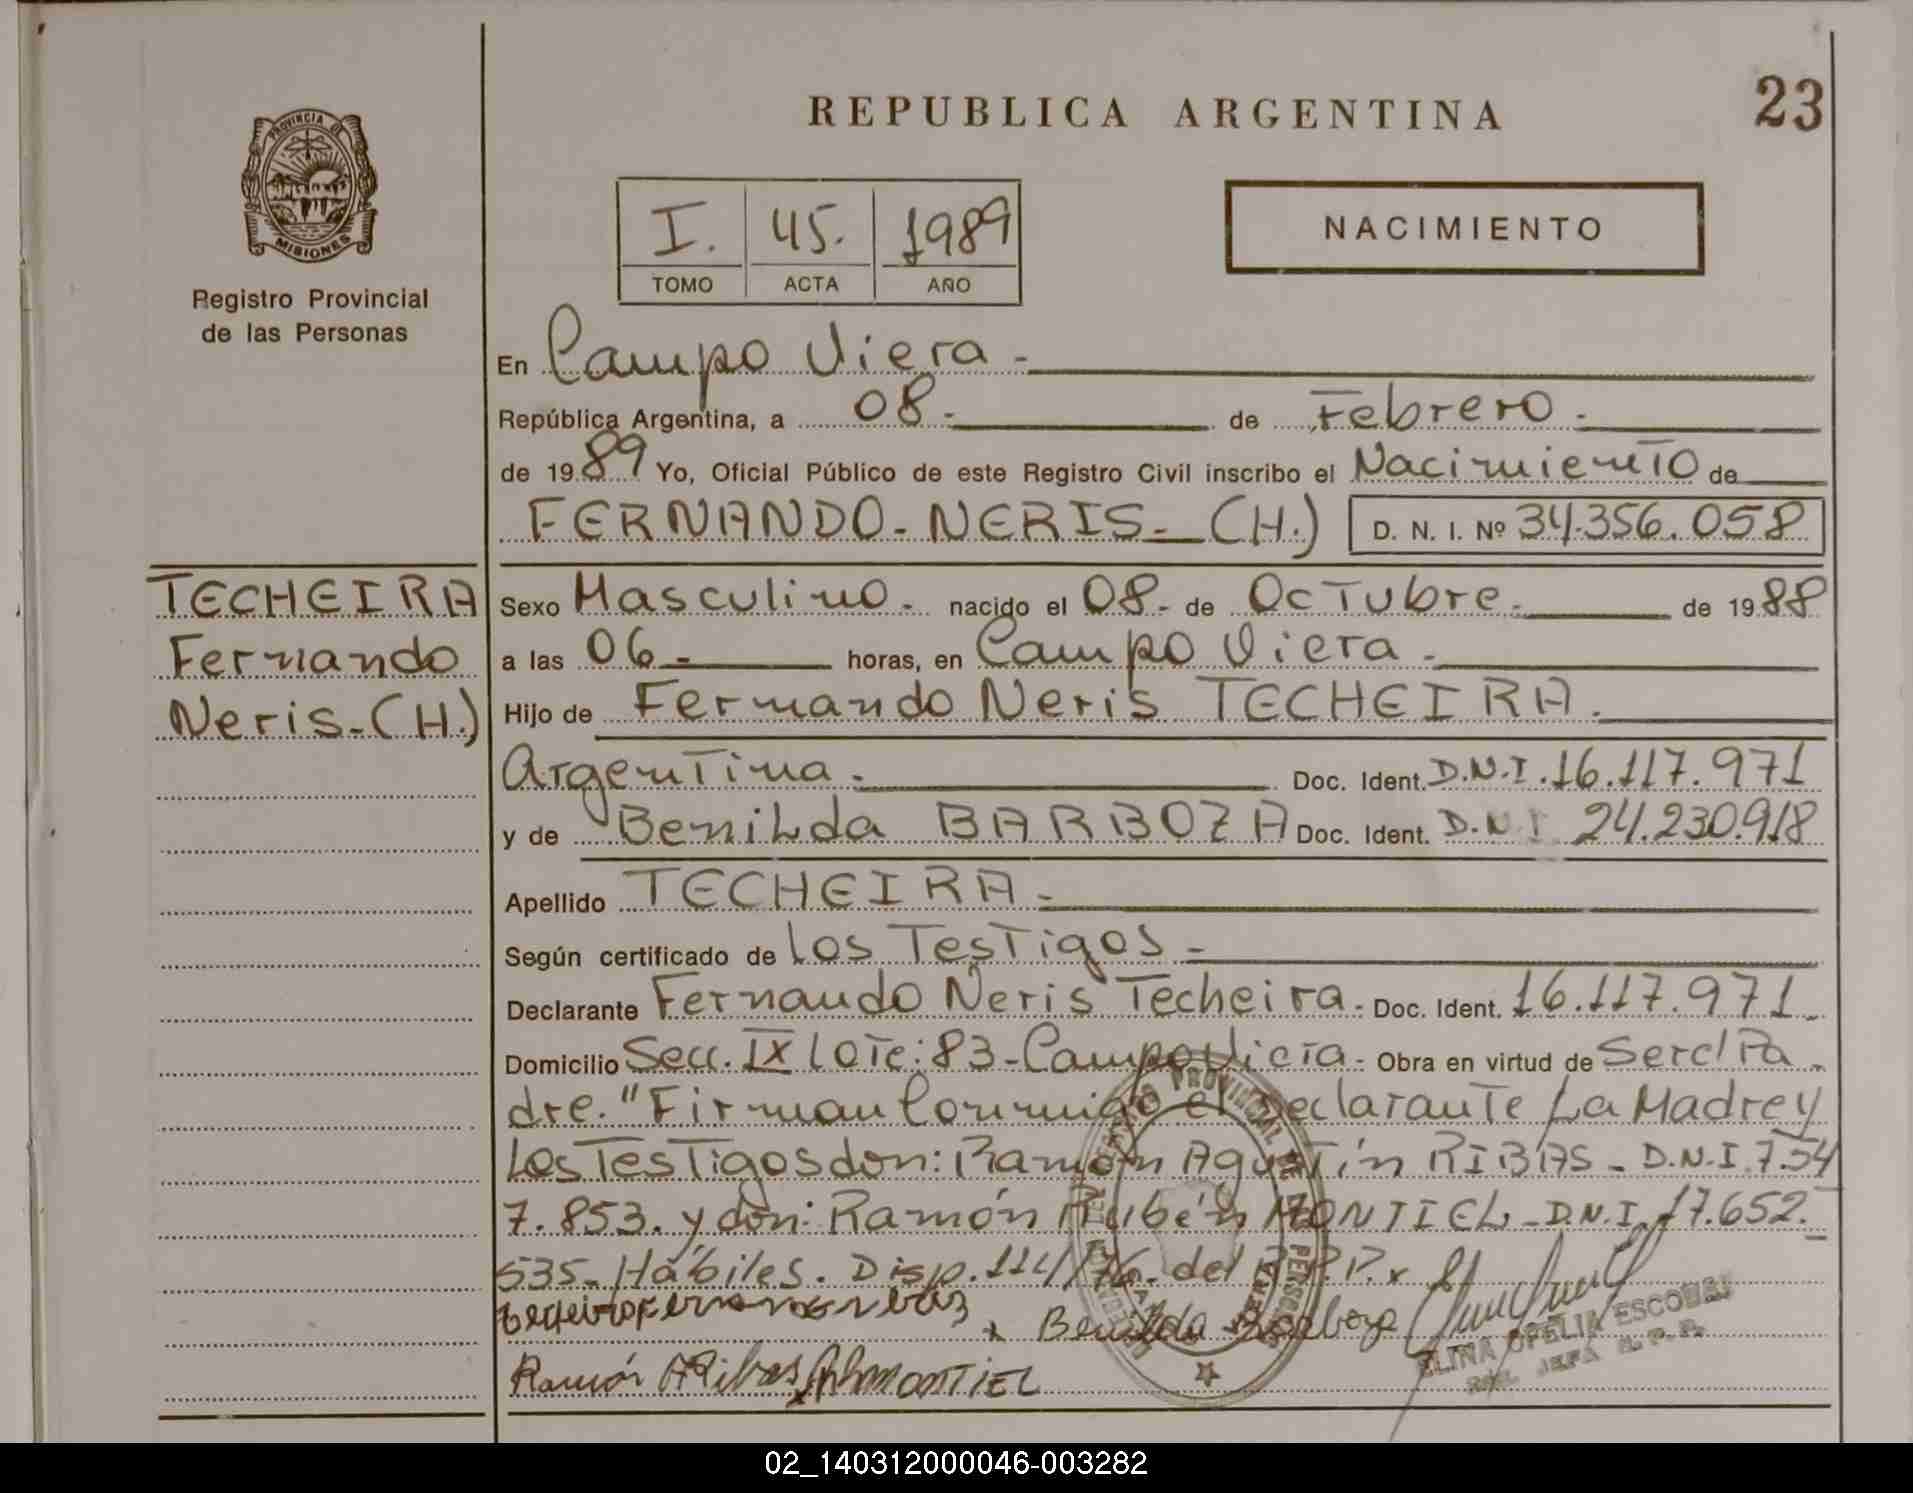 REPUBLICA ARGENTINA
23
PROVINCIA DE
MISIONES
Registro Provincial
de las Personas
I. 45. 1989
TOMO ACTA AÑO
NACIMIENTO
En Campo Viera -
República Argentina, a 08.- de Febrero.-
de 1989 Yo, Oficial Público de este Registro Civil inscribo el Nacimiento de
FERNANDO - NERIS - (H.) D. N. I. Nº 34.356.058
TECHEIRA
Fernando
Neris - (H.)
Sexo Masculino.- nacido el 08.- de Octubre.- de 1988
a las 06.- horas, en Campo Viera.-
Hijo de Fernando Neris TECHEIRA.
Argentina.- Doc. Ident. D.N.I. 16.117.971
y de Benilda BARBOZA Doc. Ident. D.N.I 24.230.918
Apellido TECHEIRA.-
Según certificado de Los Testigos -
Declarante Fernando Neris Techeira. Doc. Ident. 16.117.971.-
Domicilio Secc. IX Lote: 83 - Campo Viera. Obra en virtud de Ser el Pa-
dre. "Firman Conmigo el declarante La Madre y
Los Testigos don: Ramón Agustín RIBAS - D.N.I. 7.54
7.853. y don: Ramón Rubén MONTIEL - D.N.I. 17.652.-
535 - Hábiles. Disp. 114/76 - del R.P.P. x
x Benilda Barboza
Ramón A Ribas MONTIEL
ELINA OFELIA ESCOBAR
JEFA R. P. P.
02_140312000046-003282